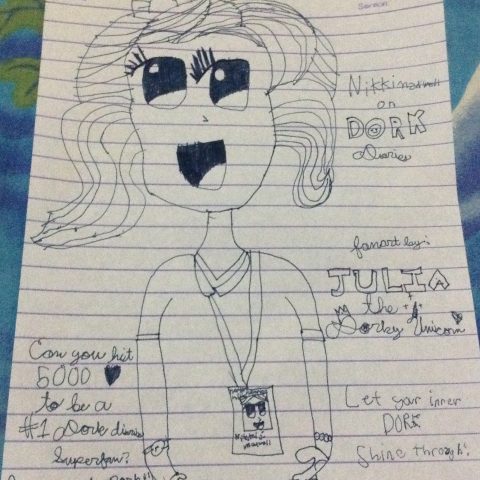 Nikki
on
DORK
Diaries
fanart by:
JULIA
the
Dorky Unicorn
Can you hit
5000
to be a
#1 Dork diaries
superfan?
Let your inner
DORK
Shine through!